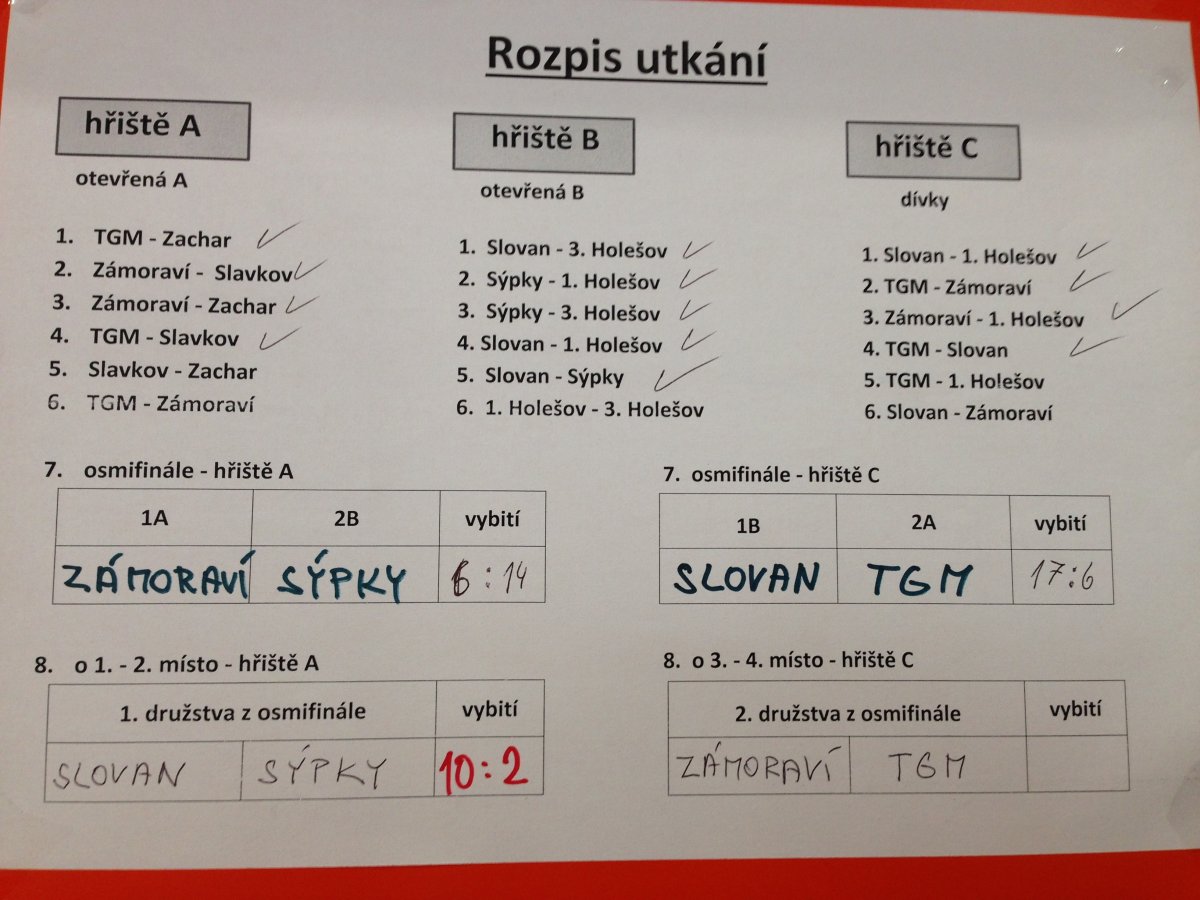 Rozpis utkání
hřiště A
otevřená A
1. TGM - Zachar
2. Zámoraví - Slavkov
3. Zámoraví - Zachar
4. TGM - Slavkov
5. Slavkov - Zachar
6. TGM - Zámoraví
hřiště B
otevřená B
1. Slovan - 3. Holešov
2. Sýpky - 1. Holešov
3. Sýpky - 3. Holešov
4. Slovan - 1. Holešov
5. Slovan - Sýpky
6. 1. Holešov - 3. Holešov
hřiště C
dívky
1. Slovan - 1. Holešov
2. TGM - Zámoraví
3. Zámoraví - 1. Holešov
4. TGM - Slovan
5. TGM - 1. Holešov
6. Slovan - Zámoraví
7. osmifinále - hřiště A
1A 2B vybití
ZÁMORAVÍ SÝPKY 6 : 14
7. osmifinále - hřiště C
1B 2A vybití
SLOVAN TGM 17:6
8. o 1. - 2. místo - hřiště A
1. družstva z osmifinále vybití
SLOVAN SÝPKY 10 : 2
8. o 3. - 4. místo - hřiště C
2. družstva z osmifinále vybití
ZÁMORAVÍ TGM